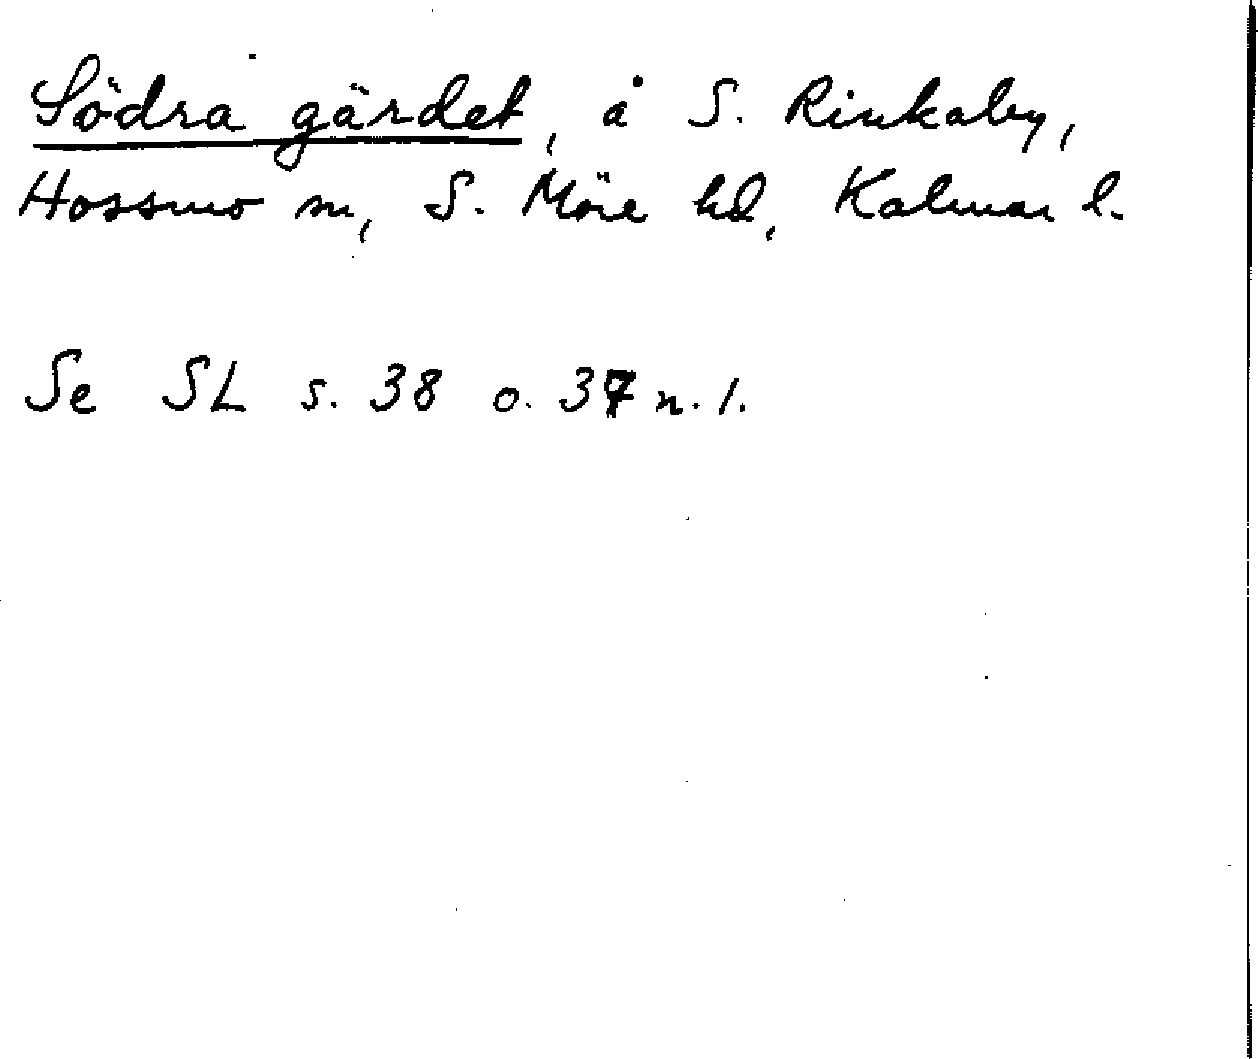 Södra gärdet, å S. Rinkaby,
Hossmo sn, S. Möre hd, Kalmar l.
Se SL s. 38 o. 37 n. 1.